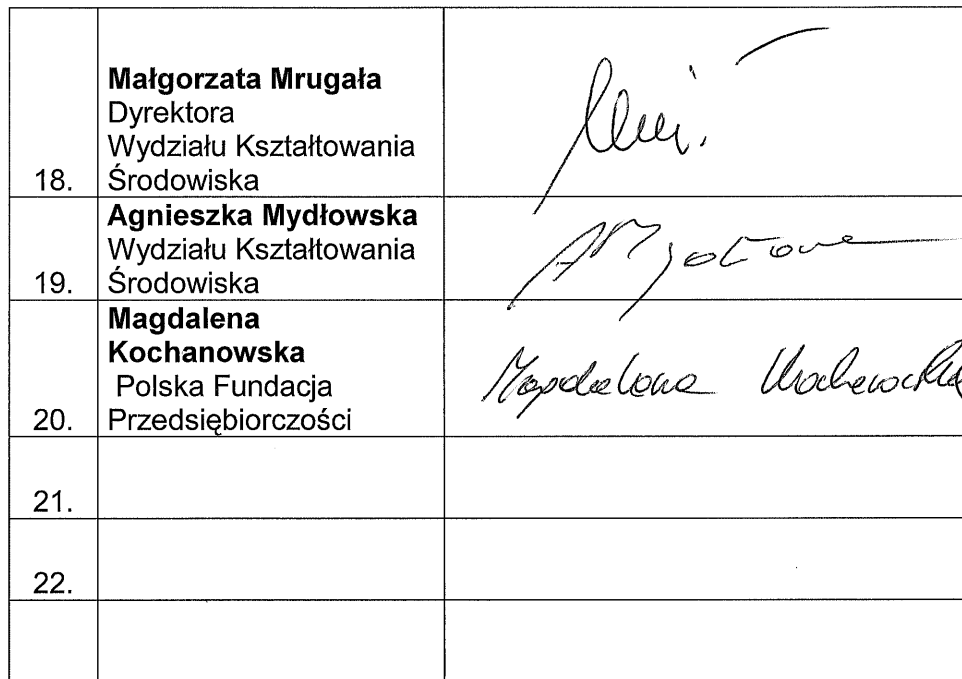 18.
Małgorzata Mrugała
Dyrektora
Wydziału Kształtowania
Środowiska
19.
Agnieszka Mydłowska
Wydziału Kształtowania
Środowiska
20.
Magdalena
Kochanowska
Polska Fundacja
Przedsiębiorczości
Magdalena Kochanowska
21.
22.